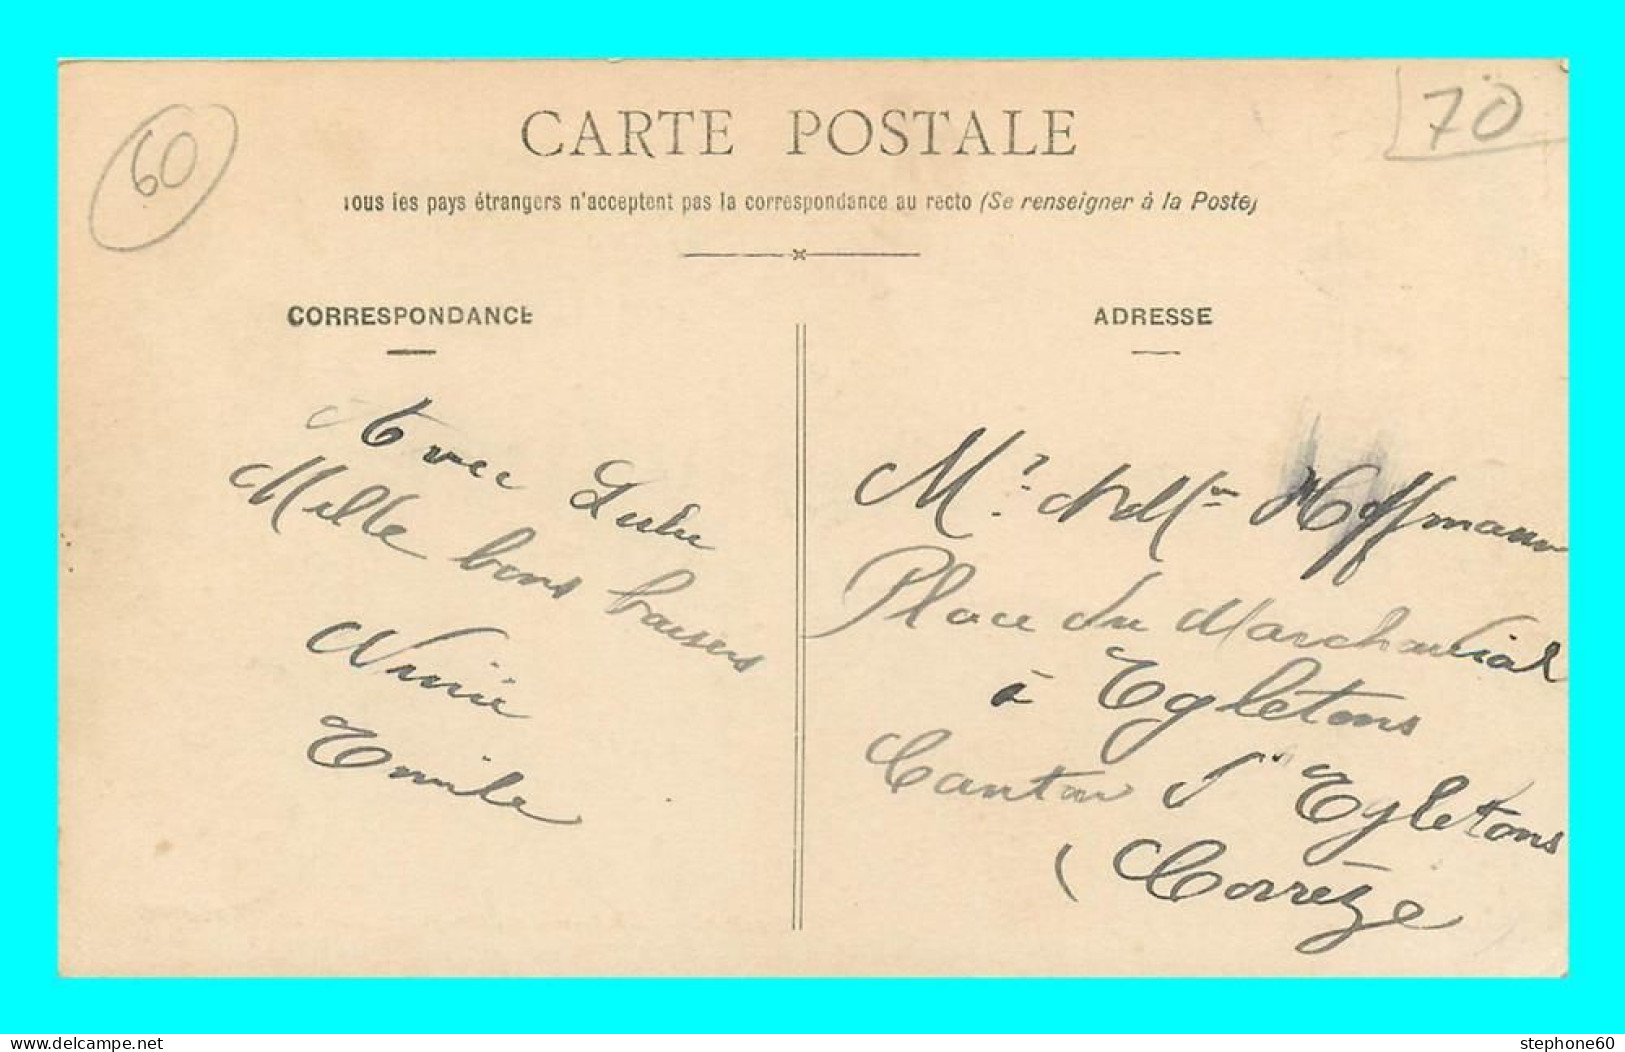 60
70
CARTE POSTALE
Tous les pays étrangers n'acceptent pas la correspondance au recto (Se renseigner à la Poste)
CORRESPONDANCE
Avec Lulu
Mille bons baisers
Ninie
Emile
ADRESSE
Mr. Hoffmann
Place du Marchadial
à Egletons
Canton d'Egletons
(Corrèze
www.delcampe.net
stephone60